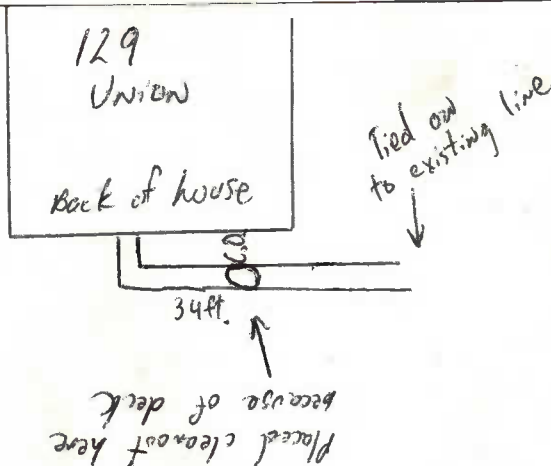 129
UNION
Back of house
Tied on
to existing line
C.O.
34ft.
Placed cleanout here
because of deck